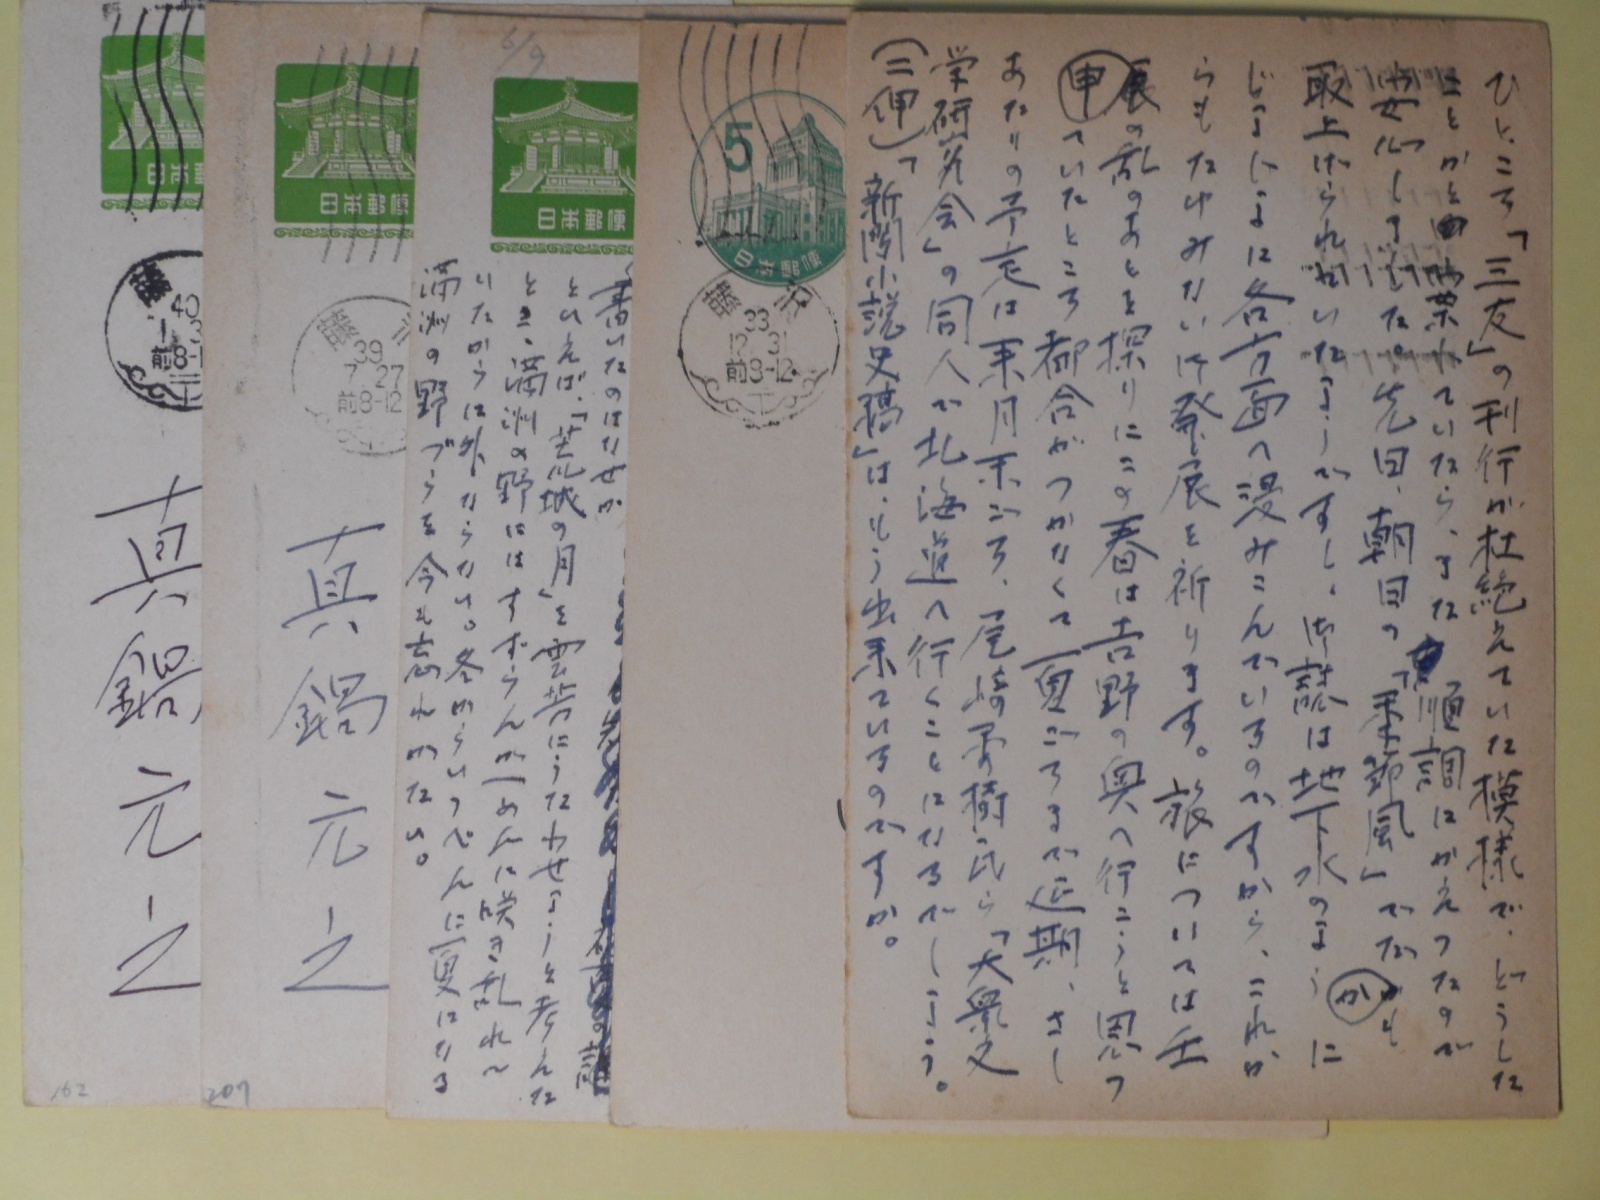 ひところ「三友」の刊行が杜絶えていた模様で、どうした
ことかと案ぜられていたら、また順調にかえつたので
安心しました。先日、朝日の「季節風」でだかも
取上げられていたようですし、御誌は地下水のように
じように各方面へ浸みこんでいるのですから、これか
らもたゆみない御発展を祈ります。旅については壬
申の乱のあとを探りにこの春は吉野の奥へ行こうと思つ
ていたところ都合がつかなくて夏ごろまで延期、さし
あたりの予定は来月末ごろ、尾崎秀樹氏ら「大衆文
学研究会」の同人で北海道へ行くことになるでしよう。
(二伸)「新聞小説史稿」は、もう出来ているのですか。
5
日本郵便
藤沢
33
12.31
前8-12
6/9
日本郵便
書いたのはなぜか
といえば、「荒城の月」を雲井にうたわせようと考えた
とき、満洲の野にはすずらんが一めんに咲き乱れ〜
いたからに外ならない。冬からいつぺんに夏になる
満洲の野づらを今も忘れがたい。
日本郵便
藤
39
7.27
前8-12
真鍋元之
207
日本郵
藤
40
1.3
前8-1
真鍋元之
162